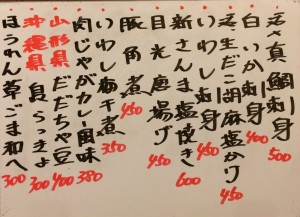 活〆真鯛刺身 500
白いか刺身 400
活生だこ胡麻塩かけ 450
いわし刺身 450
新さんま塩焼き 600
目光唐揚げ 450
豚角煮 450
いわし梅干煮 350
肉じゃがカレー風味 380
山形県 だだちゃ豆 400
沖縄県 島らっきょ 300
ほうれん草ごま和へ 300